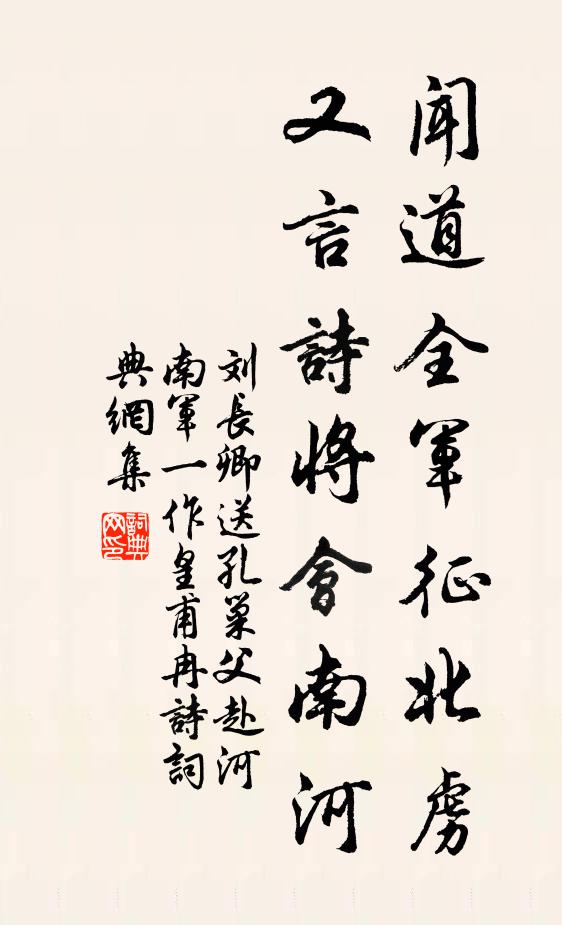 闻道全軍征北虜
又言詩將會南河
刘長卿送孔巢父赴河
南軍一作皇甫冉詩詞
典網集
詞典網印